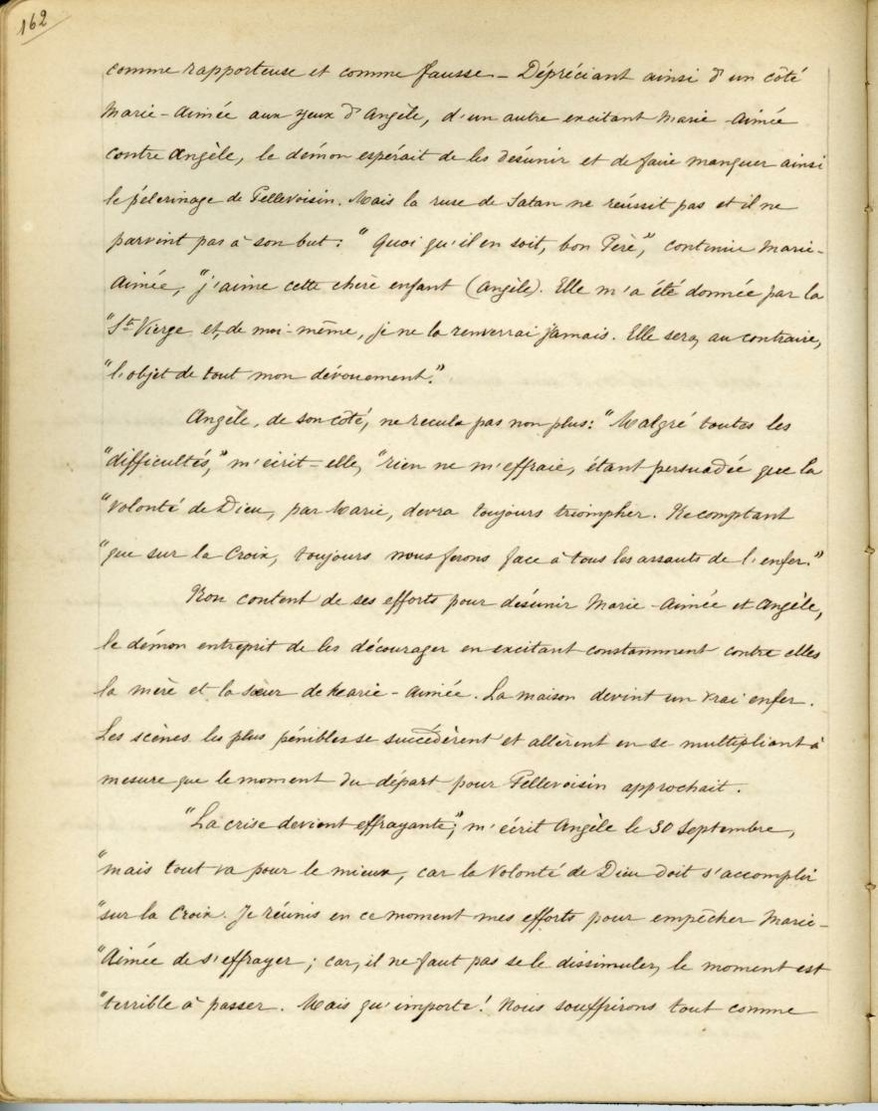 162
comme rapporteuse et comme fausse_ Dépréciant ainsi d'un côté
Marie-Aimée aux yeux d'Angèle, d'un autre excitant Marie-Aimée
contre Angèle, le démon espérait de les désunir et de faire manquer ainsi
le pélerinage de Pellevoisin. Mais la ruse de Satan ne réussit pas et il ne
parvint pas à son but: "Quoi qu'il en soit, bon Père", continue Marie-
Aimée, "j'aime cette chère enfant (Angèle). Elle m'a été donnée par la
"Ste Vierge et, de moi-même, je ne la renverrai jamais. Elle sera, au contraire,
"l'objet de tout mon dévouement."
Angèle, de son côté, ne recula pas non plus: "Malgré toutes les
"difficultés," m'écrit-elle, "rien ne m'effraie, étant persuadée que la
"Volonté de Dieu, par Marie, devra toujours triompher. Ne comptant
"que sur la Croix, toujours nous ferons face à tous les assauts de l'enfer."
Non content de ses efforts pour désunir Marie-Aimée et Angèle,
le démon entreprit de les décourager en excitant constamment contre elles
la mère et la sœur de Marie-Aimée. La maison devint un vrai enfer.
Les scènes les plus pénibles se succédèrent et allèrent en se multipliant à
mesure que le moment du départ pour Pellevoisin approchait.
"La crise devient effrayante", m'écrit Angèle le 30 Septembre,
"mais tout va pour le mieux, car la Volonté de Dieu doit s'accomplir
"sur la Croix. Je réunis en ce moment mes efforts pour empêcher Marie-
"Aimée de s'effrayer; car, il ne faut pas se le dissimuler, le moment est
"terrible à passer. Mais qu'importe! Nous souffrirons tout comme